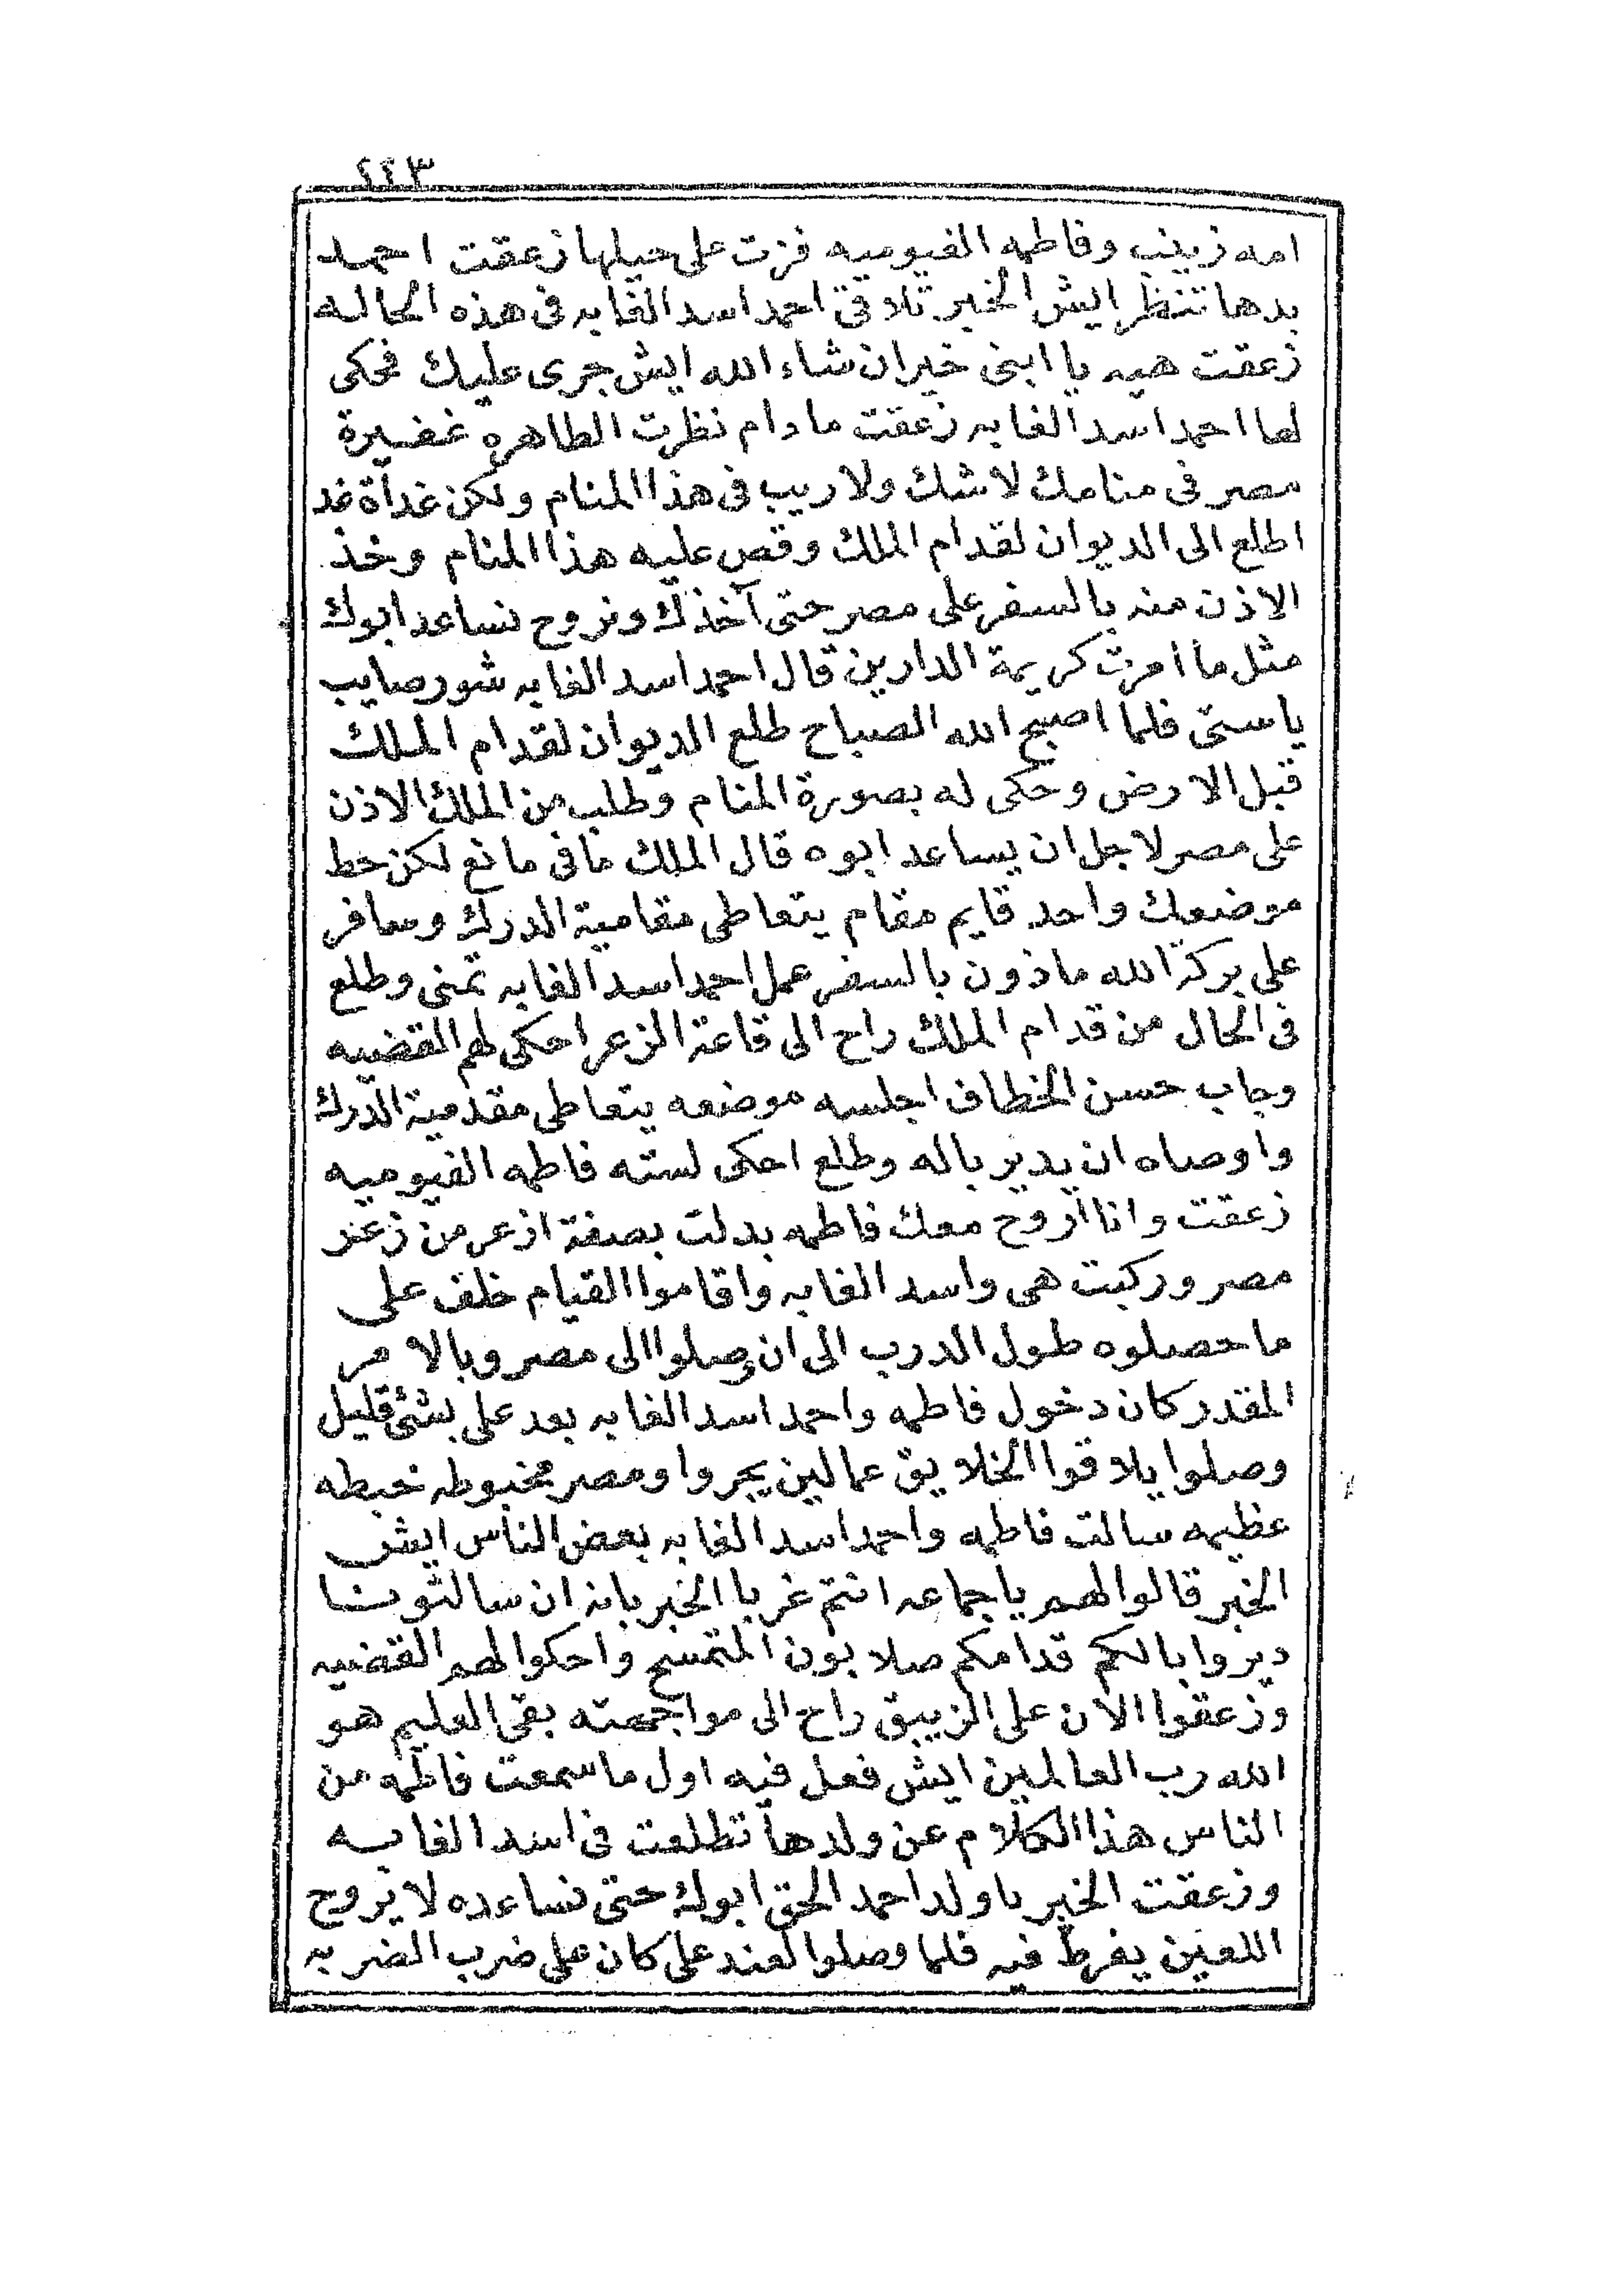 ٤٤٣
امه زينب وفاطمه الفيوميه فزت على حيلها زعقت احمد
بدها تنظر ايش الخبر تلاقى احمد اسد الغابه فى هذه الحاله
زعقت هيه يا ابنى خير ان شاء الله ايش جرى عليك فحكى
لها احمد اسد الغابه زعقت ما دام نظرت الطاهره غفيرة
مصر فى منامك لا شك ولا ريب فى هذا المنام ولكن غداة غد
اطلع الى الديوان لقدام الملك وقص عليه هذا المنام وخذ
الاذن منه بالسفر على مصر حتى آخذك ونروح نساعد ابوك
مثل ما أمرت كريمة الدارين قال احمد اسد الغابه شور صايب
يا ستى فلما اصبح الله الصباح طلع الديوان لقدام الملك
قبل الارض وحكى له بصورة المنام وطلب من الملك الاذن
على مصر لاجل ان يساعد ابوه قال الملك ما فى مانع لكن حط
موضعك واحد قايم مقام يتعاطى مقامية الدرك وسافر
على بركة الله ماذون بالسفر عمل احمد اسد الغابه تمنى وطلع
فى الحال من قدام الملك راح الى قاعة الزعر احكى لهم القضيه
وجاب حسن الخطاف اجلسه موضعه يتعاطى مقدمية الدرك
واوصاه ان يدير باله وطلع احكى لسته فاطمه الفيوميه
زعقت وانا أروح معك فاطمه بدلت بصفة ازعر من زعر
مصر وركبت هى واسد الغابه واقاموا القيام خلف على
ما حصلوه طول الدرب الى ان وصلوا الى مصر وبالامر
المقدر كان دخول فاطمه واحمد اسد الغابه بعد على بشئ قليل
وصلوا يلاقوا الخلايق عمالين يجروا ومصر مخبوطه خبطه
عظيمه سالت فاطمه واحمد اسد الغابه بعض الناس ايش
الخبر قالوا لهم يا جماعه انتم غربا الخبر بانه ان سالتونا
ديروا بالكم قدامكم صلابون المتمسح واحكوا لهم القضيه
وزعقوا الآن على الزيبق راح الى مواجهته بقى العليم هو
الله رب العالمين ايش فعل فيه اول ما سمعت فاطمه من
الناس هذا الكلام عن ولدها تطلعت فى اسد الغابه
وزعقت الخبر يا ولد احمد الحق ابوك حتى نساعده لا يروح
اللعين يفرط فيه فلما وصلوا لعند على كان على ضرب الضربه